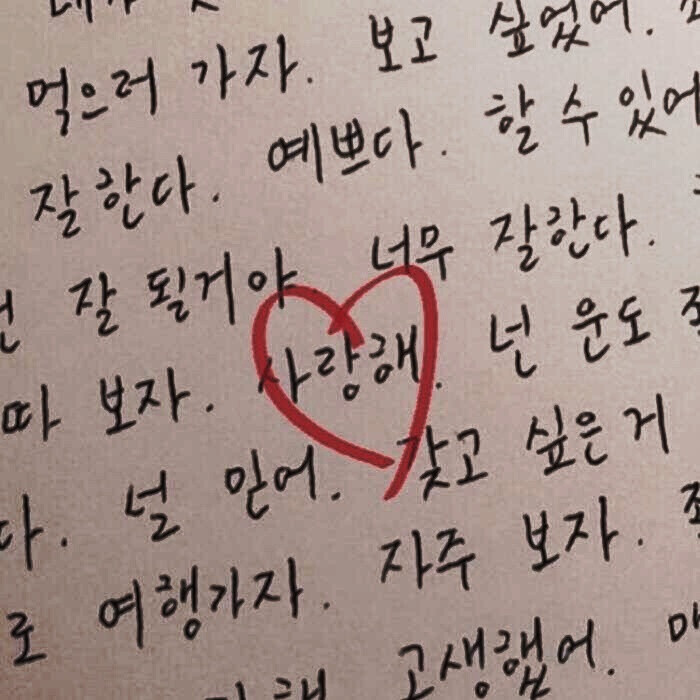 먹으러 가자. 보고 싶었어.
잘한다. 예쁘다. 할 수 있어
잘 될거야 너무 잘한다.
따 보자. 사랑해. 넌 운도
다. 널 믿어. 갖고 싶은 거
로 여행가자. 자주 보자.
고생했어.